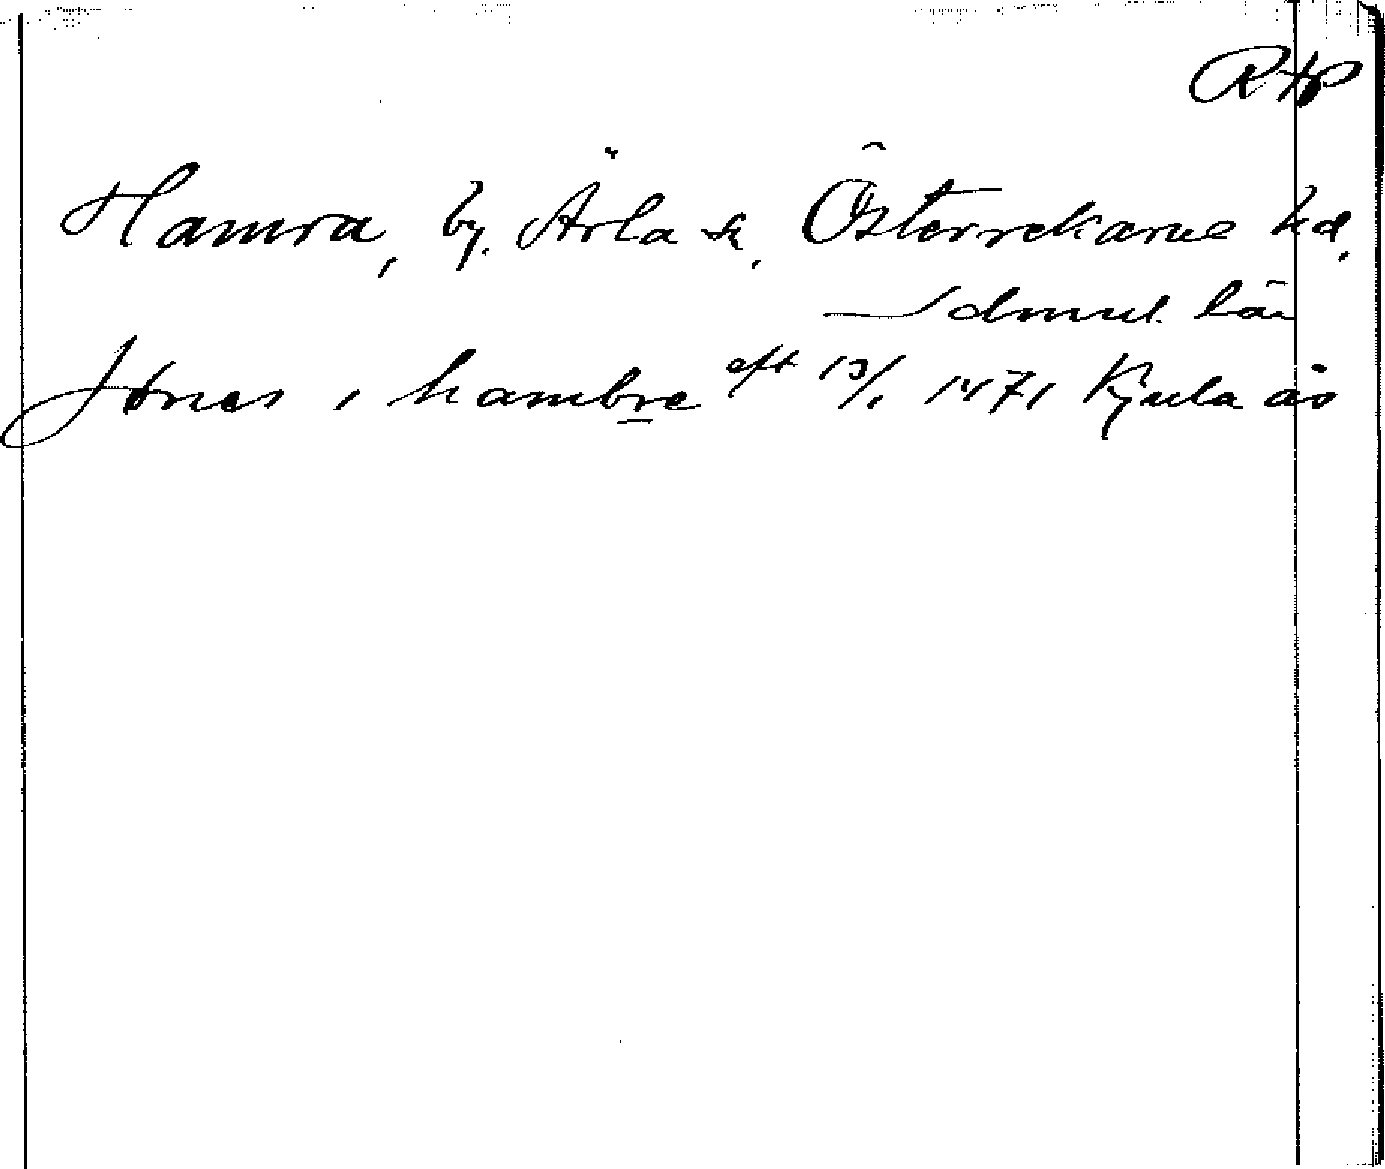 RAP
Hamra, by. Ärla sk, Österrekarne hd.
Sdmnl. län
Jönes i hambre eft 13/1 1471 Kjula ås